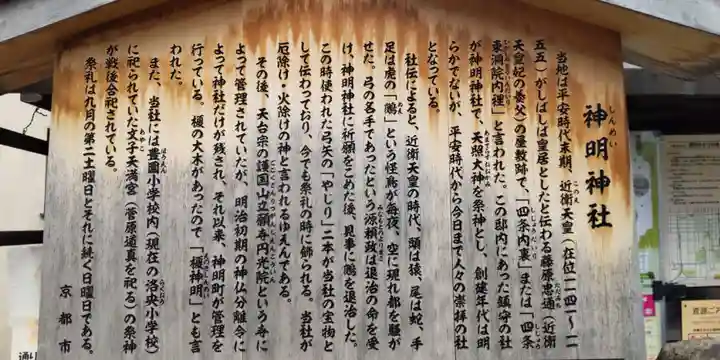 神明神社
しんめい
当地は平安時代末期、近衛天皇（在位一一四一〜一一
五五）がしばしば皇居としたと伝わる藤原忠通（近衛
天皇妃の養父）の屋敷跡で、「四条内裏」または「四条
東洞院内裡」と言われた。この邸内にあった鎮守の社
が神明神社で、天照大神を祭神とし、創建年代は明
らかでないが、平安時代から今日まで人々の崇拝の社
となっている。
社伝によると、近衛天皇の時代、頭は猿、尾は蛇、手
足は虎の「鵺」という怪鳥が毎夜、空に現れ都を騒が
せた。弓の名手であったという源頼政は退治の命を受
け、神明神社に祈願をこめた後、見事に鵺を退治した。
この時使われた弓矢の「やじり」二本が当社の宝物と
して伝わっており、今でも祭礼の時に飾られる。当社が
厄除け・火除けの神と言われるゆえんである。
その後、天台宗の護国山立願寺円光院という寺に
よって管理されていたが、明治初期の神仏分離令に
よって神社だけが残され、それ以来、神明町が管理を
行っている。榎の大木があったので「榎神明」とも言
われた。
また、当社には豊園小学校内（現在の洛央小学校）
に祀られていた文子天満宮（菅原道真を祀る）の祭神
が戦後合祀されている。
祭礼は九月の第二土曜日とそれに続く日曜日である。
京都市